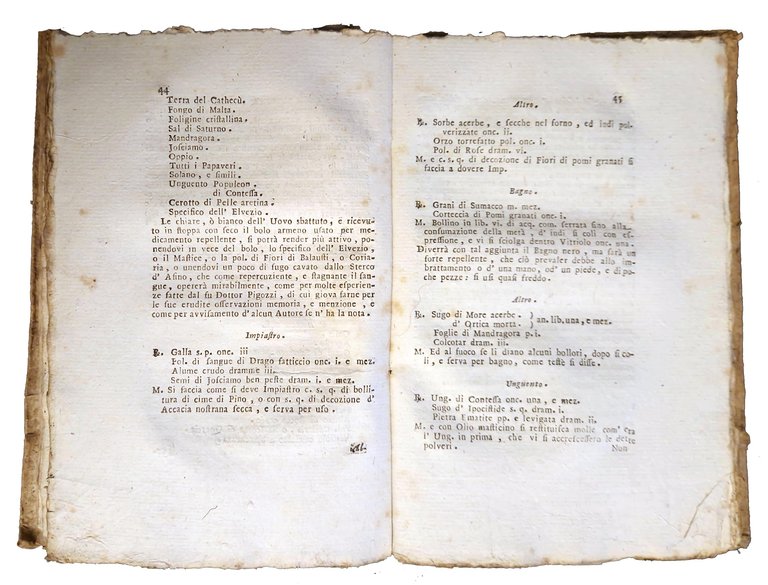 44
Terra del Cathecù.
Fongo di Malta.
Foligine cristallina.
Sal di Saturno.
Mandragora.
Josciamo.
Oppio.
Tutti i Papaveri.
Solano, e simili.
Unguento Populeon.
di Contessa.
Cerotto di Pelle aretina.
Specifico dell' Elvezio.
Le chiare, ò bianco dell' Uovo sbattuto, e ricevuto
in stoppa con seco il bolo armeno usato per me-
dicamento repellente, si potrà render più attivo, po-
nendovi in vece del bolo, lo specifico dell' Elvezio,
o il Mastice, o la pol. di Fiori di Balausti, o Cotia-
ria, o unendovi un poco di sugo cavato dallo Sterco
d' Asino, che come repercuziente, e stagnante il san-
gue, opererà mirabilmente, come per molte esperien-
ze fatte dal fu Dottor Pigozzi, di cui giova farne per
le sue erudite osservazioni memoria, e menzione, e
come per avvisamento d' alcun Autore se n' ha la nota.
Impiastro.
℞. Galla s. p. onc. iii
Pol. di sangue di Drago fatticcio onc. i. e mez.
Alume crudo dramme iii.
Semi di Josciamo ben peste dram. i. e mez.
M. Si faccia come si deve Impiastro c. s. q. di bolli-
tura di cime di Pino, o con s. q. di decozione d'
Accacia nostrana secca, e serva per uso.
Al-
45
Altro.
℞. Sorbe acerbe, e secche nel forno, ed indi pol-
verizzate onc. ii.
Orzo torrefatto pol. onc. i.
Pol. di Rose dram. vi.
M. e c. s. q. di decozione di Fiori di pomi granati si
faccia a dovere Imp.
Bagno.
℞. Grani di Sumacco m. mez.
Corteccia di Pomi granati onc. i.
M. Bollino in lib. vi. di acq. com. serrata sino alla
consumazione della metà, d' indi si coli con es-
pressione, e vi si sciolga dentro Vitriolo onc. una.
Diverrà con tal aggiunta il Bagno nero, ma sarà un
forte repellente, che ciò prevaler debbe allo im-
brattamento o d' una mano, od' un piede, e di po-
che pezze: si usi quasi freddo.
Altro.
℞. Sugo di More acerbe. } an. lib. una, e mez.
d' Ortica morta.
Foglie di Mandragora p. i.
Colcotar dram. iii.
M. Ed al fuoco se li diano alcuni bollori, dopo si co-
li, e serva per bagno, come testè si disse.
Unguento.
℞. Ung. di Contessa onc. una, e mez.
Sugo d' Ipocistide s. q. dram. i.
Pietra Ematite pp. e levigata dram. ii.
M. e con Olio masticino si restituisca molle com' era
l' Ung. in prima, che vi si accrescessero le dette
polveri.
Non